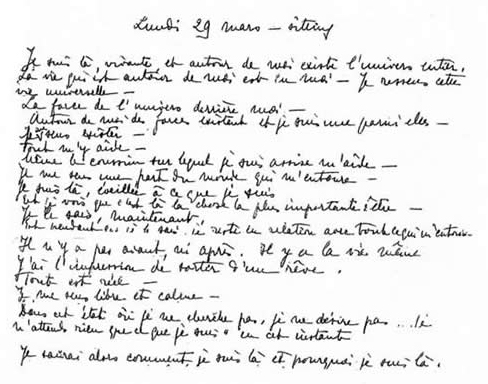 Lundi 29 mars – sitting
Je suis là, vivante, et autour de moi existe l'univers entier.
La vie qui est autour de moi est en moi – Je ressens cette
vie universelle –
La force de l'univers derrière moi –
Autour de moi des forces existent et je suis une parmi elles –
Je sens exister –
Tout m'y aide –
Même le coussin sur lequel je suis assise m'aide –
Je me sens une part du monde qui m'entoure –
Je suis là, éveillée à ce que je suis
Et je vois que c'est là la chose la plus importante : être –
Je le sais, maintenant,
Et pendant que je le sais, je reste en relation avec tout ce qui m'entoure
Il n'y a pas avant, ni après. Il y a la vie même
J'ai l'impression de sortir d'un rêve.
Tout est réel –
Je me sens libre et calme –
Dans cet état où je ne cherche pas, je ne désire pas ... je
n'attends rien que ce que je suis en cet instant
Je saurai alors comment je suis là et pourquoi je suis là.